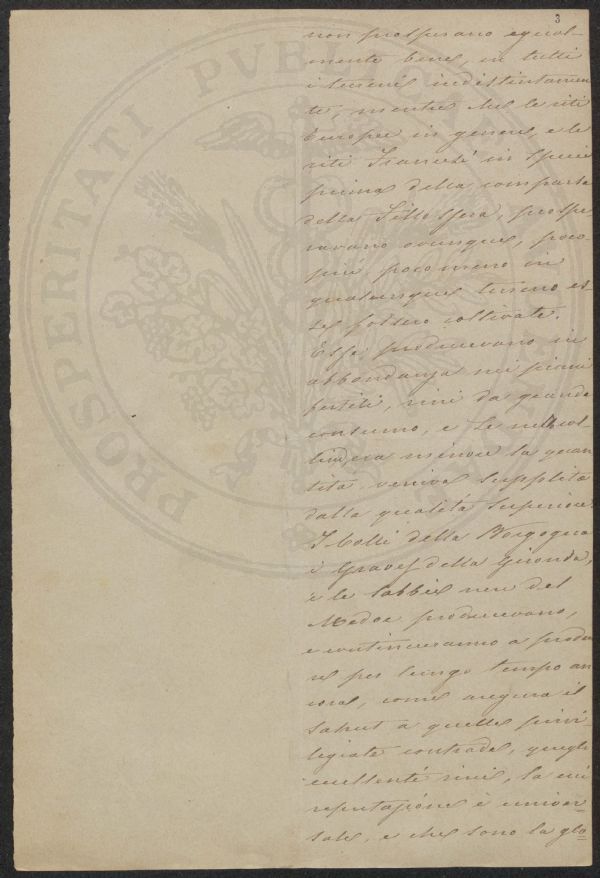 3
non prosperano egual-
mente bene, in tutti
i terreni indistintamen
te, mentre che le viti
Europee in genere, e le
viti Francesi in specie
prima della comparsa
della Fillossera, prospe
ravano ovunque, poco
più poco meno in
qualunque terreno es-
se fossero coltivate.
Esse producevano in
abbondanza nei piani
fertili, vini da grande
consumo, e se nelle col-
line, era minore la quan
tità veniva supplita
dalla qualità superiore.
I Colli della Borgogna
i Graves della Gironda,
e le sabbie nere del
Medoc producevano,
e continueranno a produr
re per lungo tempo an
cora, come augura il
a quelle privi-
legiate contrade, quegli
eccellenti vini, la cui
reputazione è univer-
sale, e che sono la glo-
PROSPERITATI PVBLICAE